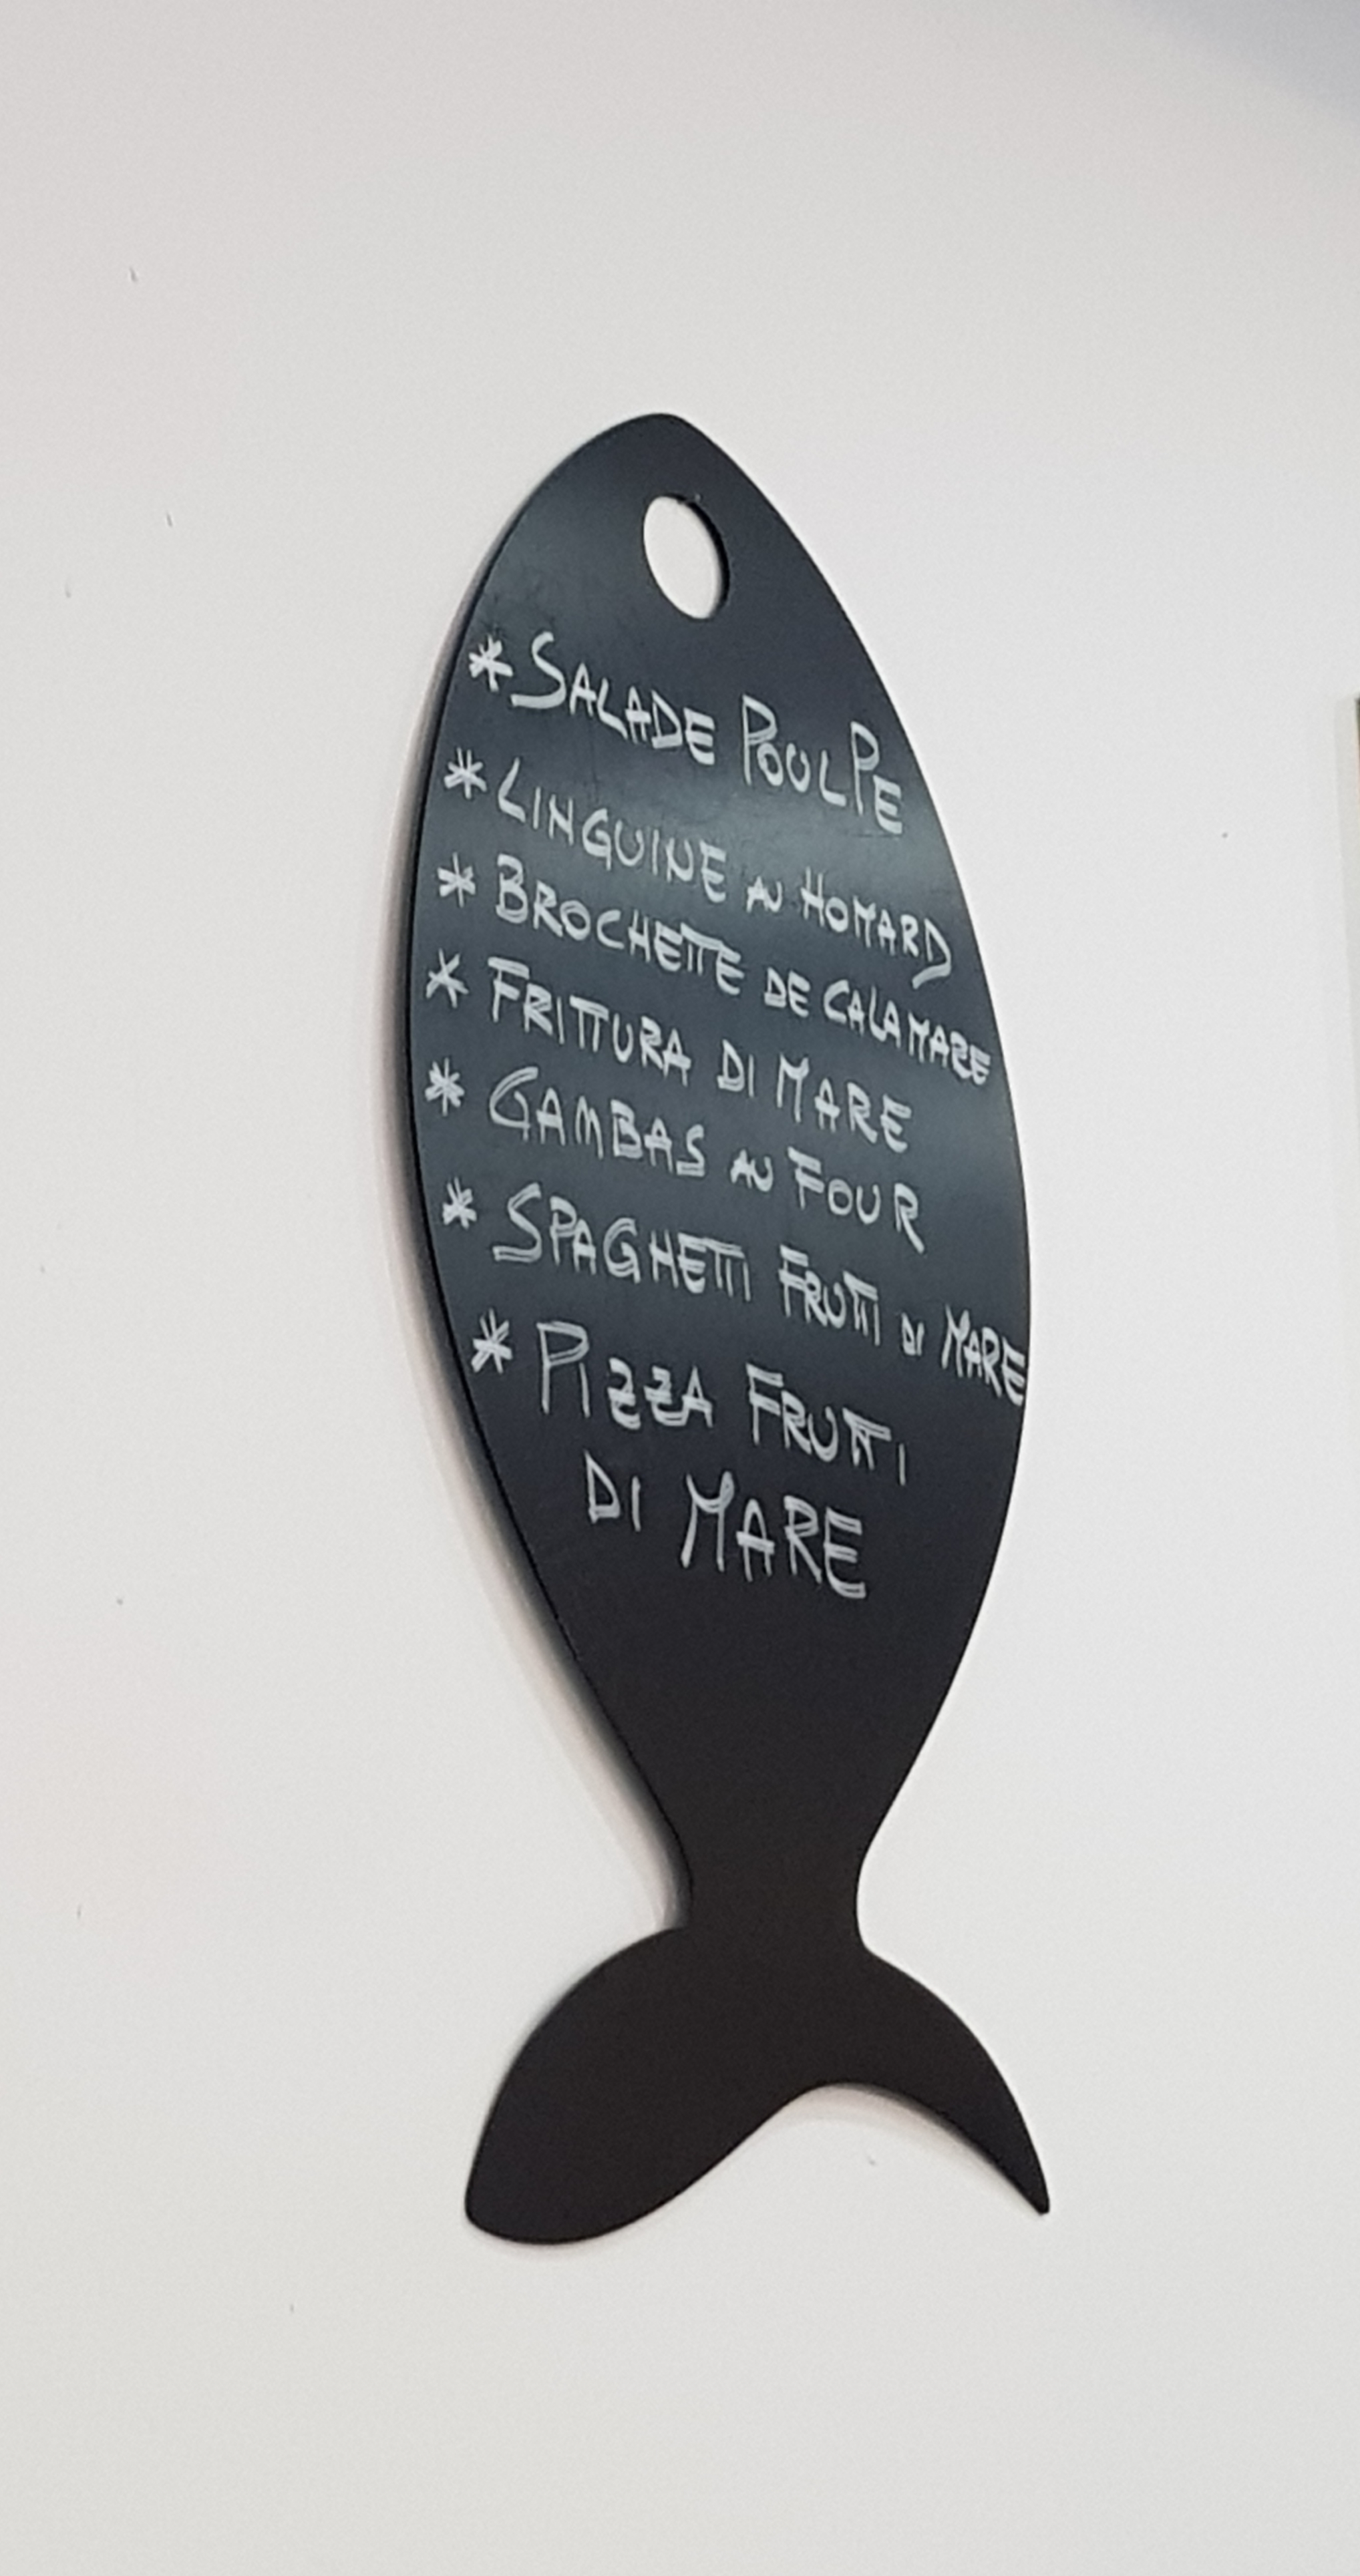 * SALADE POULPE
* LINGUINE AU HOMARD
* BROCHETTE DE CALAMARE
* FRITTURA DI MARE
* GAMBAS AU FOUR
* SPAGHETTI FRUTTI DI MARE
* PIZZA FRUTTI
DI MARE